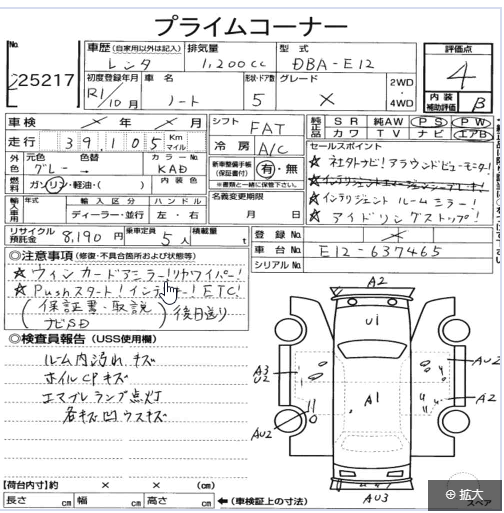 プライムコーナー
No.
25217
車歴 (自家用以外は記入)
レンタ
排気量
1,200cc
型式
DBA-E12
評価点
4
初度登録年月
R1/10月
車名
ノート
形状・ドア数
5
グレード
×
2WD
・
4WD
内装
補助評価
B
車検 × 年 × 月
走行 39,105 Km
マイル
シフト
FAT
冷房
A/C
純正品
SR 純AW PS PW
カワ TV ナビ エアB
外色
元色 色替
グレー →
カラーNo.
KAD
燃料
ガソリン・軽油・( )
内装色
新車整備手帳
(保証書付)
有・無
※書類と一緒に保管下さい。
セールスポイント
★ 社外ナビ!アラウンドビューモニター!
★ インテリジェントルームミラー!
★ アイドリングストップ!
輸入車用
年式
輸入区分
ディーラー・並行
ハンドル
左・右
名義変更期限
月 日
リサイクル
預託金
8,190円
乗車定員
5人
積載量
t
登録No. ×
車台No. E12-637465
シリアルNo.
◎注意事項 (修復・不具合箇所および状態等)
★ ウィンカードアミラー!リヤワイパー!
★ Pushスタート!インテキー!ETC!
(保証書・取説
ナビSD)
後日送り
◎検査員報告 (USS使用欄)
ルーム内汚れ キズ
ホイルCPキズ
エマブレランプ点灯
各キズ凹ウスキズ
A2
U1
A3
U2
A1
AU2
A2
AU2
AU3
【荷台内寸】約 × × (cm)
長さ cm 幅 cm 高さ cm
←(車検証上の寸法)
スペア
拡大